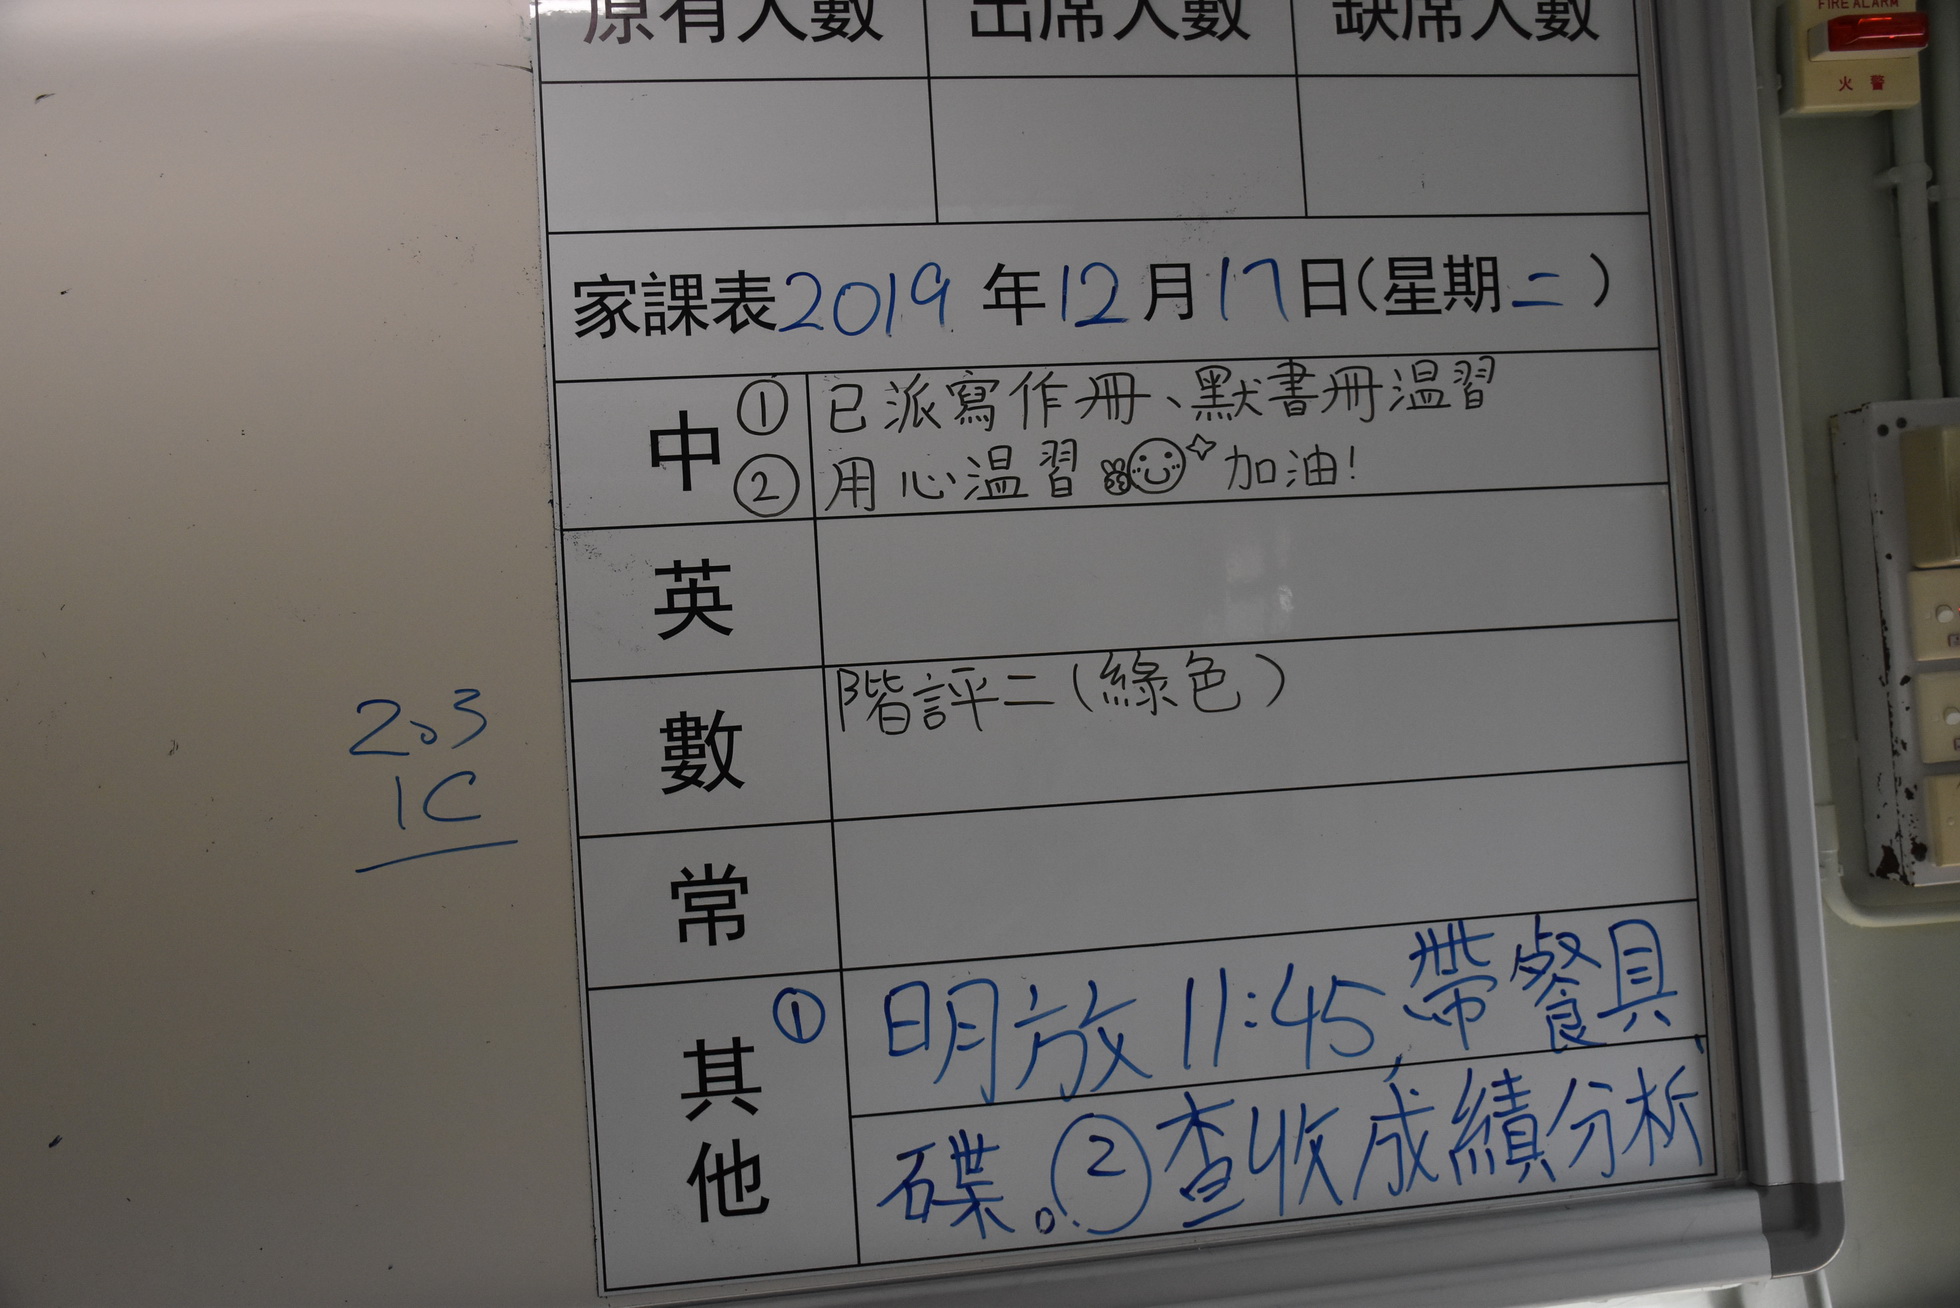 原有人數 出席人數 缺席人數
FIRE ALARM
火 警
家課表2019年12月17日(星期二)
中 ① 已派寫作冊、默書冊温習
② 用心温習 加油!
英
數 階評二(綠色)
常
其他 ① 明放11:45,帶餐具、
碟。②查收成績分析
2、3
1C